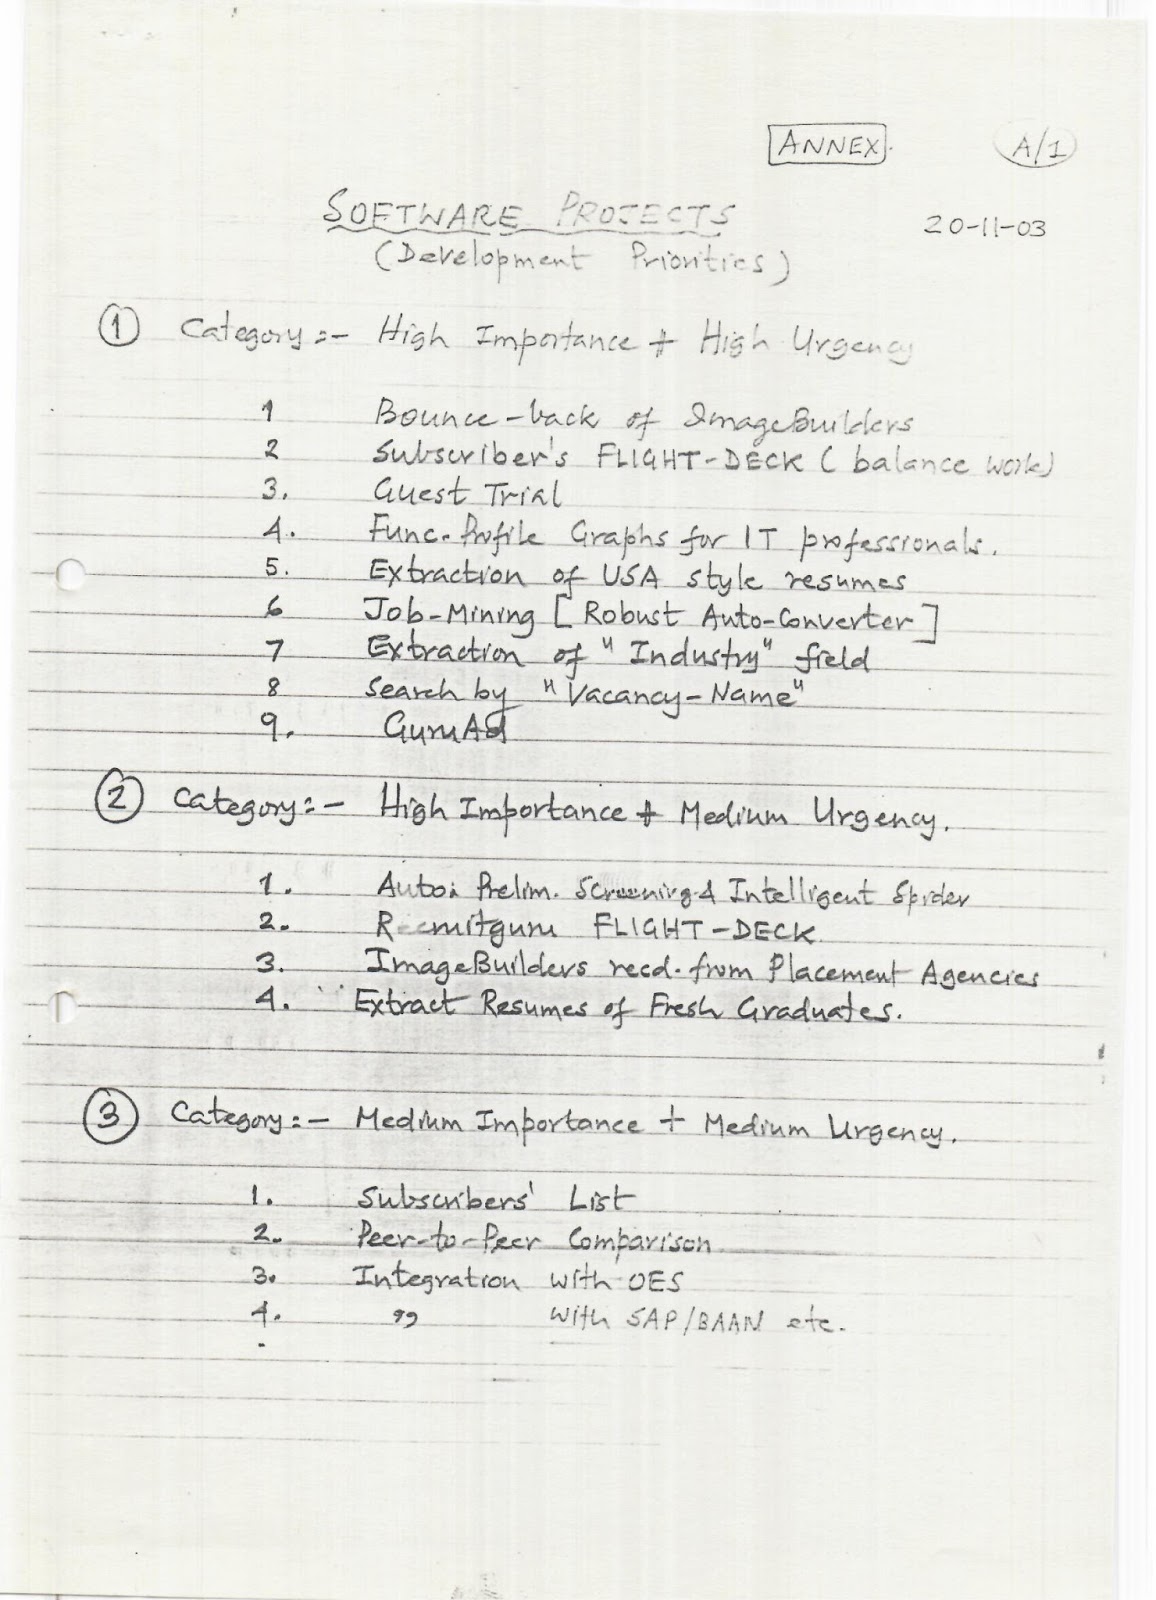 ANNEX. A/1
SOFTWARE PROJECTS
20-11-03
(Development Priorities)
① Category:- High Importance + High Urgency
1 Bounce-back of ImageBuilders
2 Subscriber's FLIGHT-DECK (balance work)
3. Guest Trial
4. Func. Profile Graphs for IT professionals.
5. Extraction of USA style resumes
6 Job-Mining [Robust Auto-Converter]
7 Extraction of "Industry" field
8 Search by "Vacancy-Name"
9. GuruAd
② Category:- High Importance + Medium Urgency.
1. Auto. Prelim. Screening & Intelligent Spider
2. Recruitguru FLIGHT-DECK
3. ImageBuilders recd. from Placement Agencies
4. Extract Resumes of Fresh Graduates.
③ Category:- Medium Importance + Medium Urgency.
1. Subscribers' List
2. Peer-to-Peer Comparison
3. Integration with OES
4. " with SAP/BAAN etc.